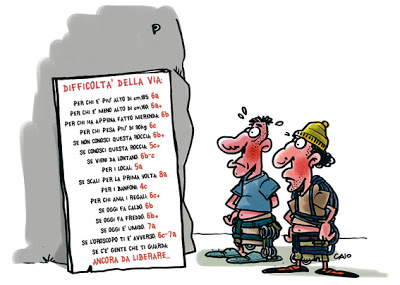 P
DIFFICOLTA' DELLA VIA:
PER CHI E' PIU' ALTO DI cm.185. 6a
PER CHI E' MENO ALTO DI cm.160. 6a+
PER CHI HA APPENA FATTO MERENDA 6b
PER CHI PESA PIU' DI 90kg 6c
SE NON CONOSCI QUESTA ROCCIA 6b+
SE CONOSCI QUESTA ROCCIA 5c+
SE VIENI DA LONTANO. 6b-c
PER I LOCAL. 5a
SE SCALI PER LA PRIMA VOLTA 8a
PER I BANFONI 4c
PER CHI AMA I REGALI 6c+
SE OGGI FA CALDO. 6b
SE OGGI FA FREDDO. 6b+
SE OGGI E' UMIDO 7a
SE L'OROSCOPO TI E' AVVERSO. 6c-7a
SE C'E' GENTE CHE TI GUARDA
ANCORA DA LIBERARE...
CAIO